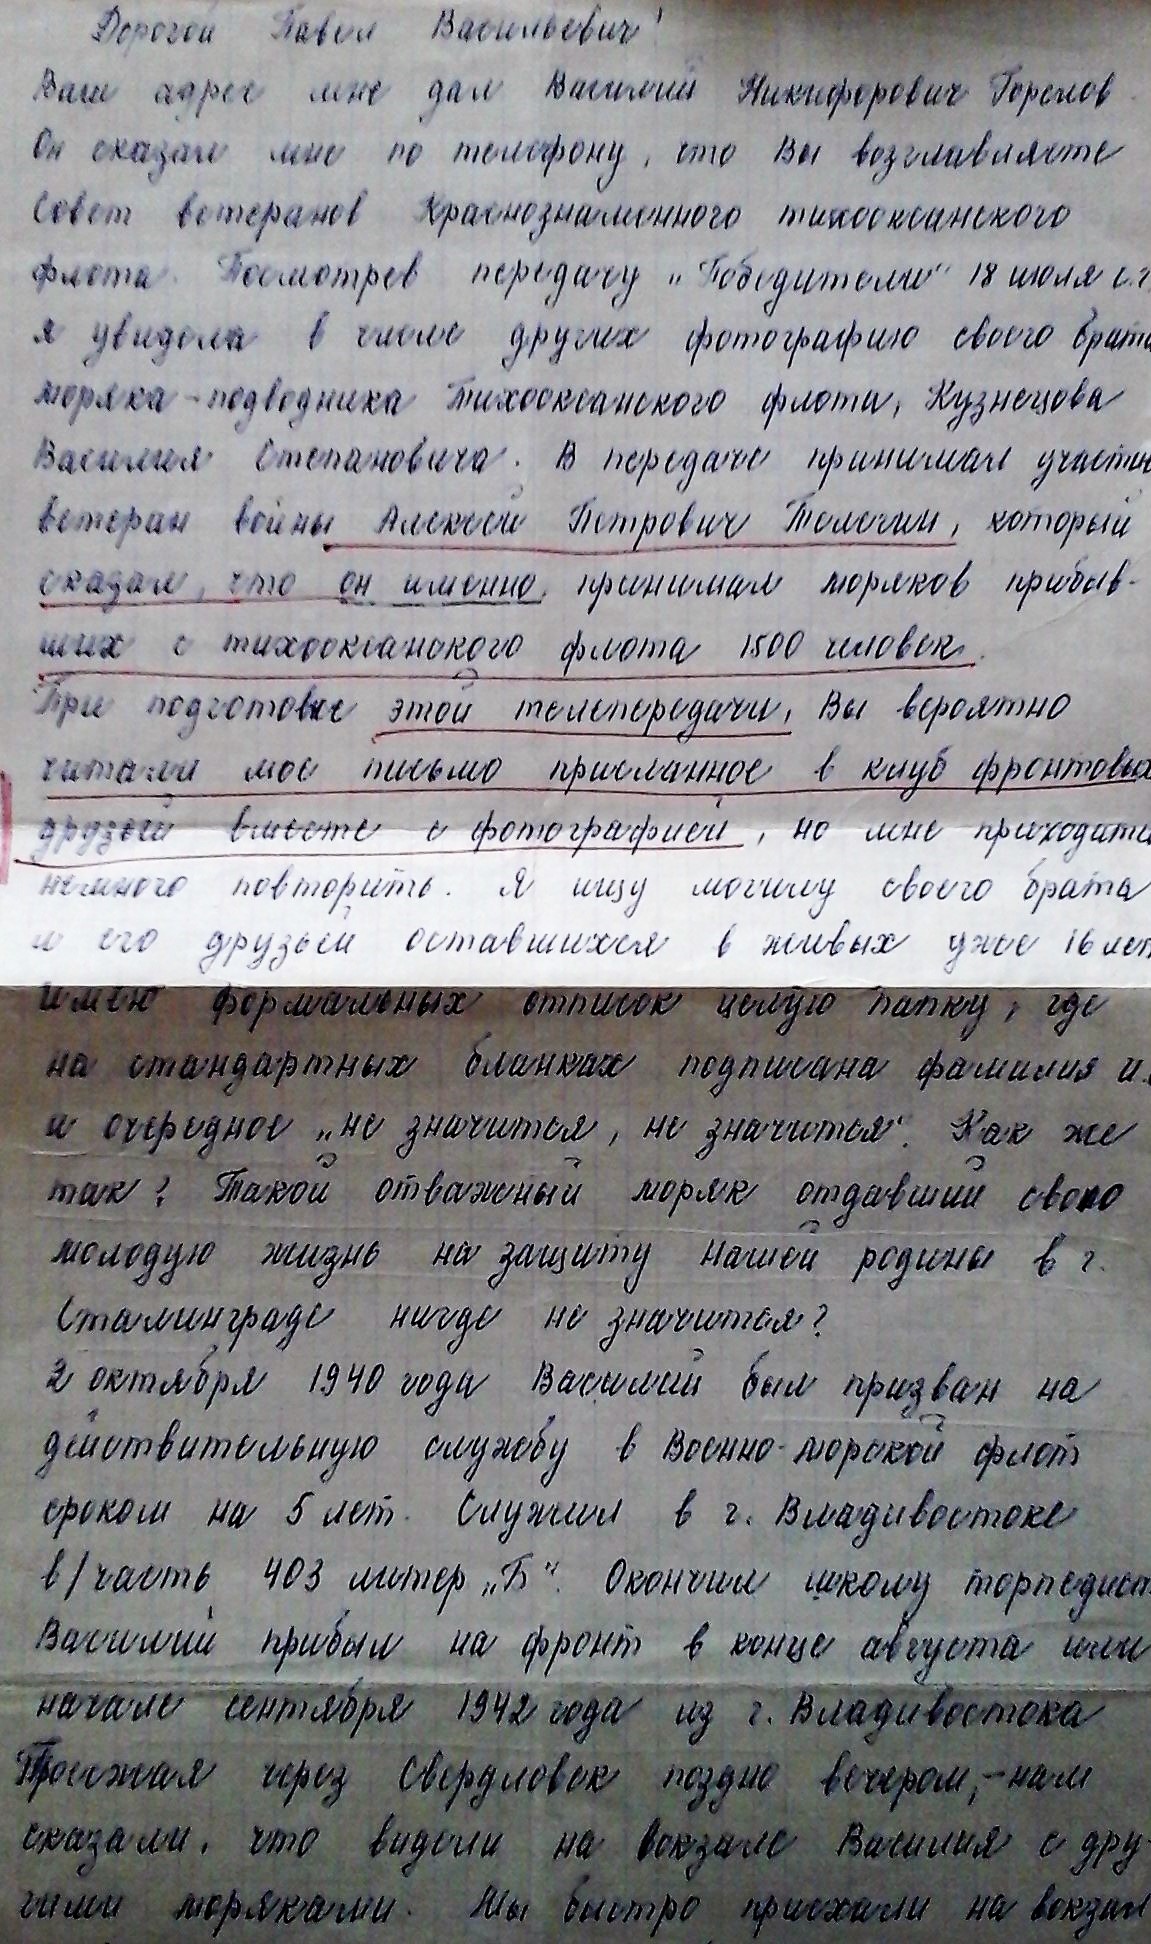 Дорогой Павел Васильевич!
Ваш адрес мне дал Василий Никифорович Горелов.
Он сказал мне по телефону, что Вы возглавляете
Совет ветеранов Краснознаменного тихоокеанского
флота. Посмотрев передачу „Победители" 18 июля с.г.
я увидела в числе других фотографию своего брата
моряка-подводника Тихоокеанского флота, Кузнецова
Василия Степановича. В передаче принимал участие
ветеран войны Алексей Петрович, который
сказал, что он именно принимал моряков прибыв-
ших с тихоокеанского флота 1500 человек.
При подготовке этой телепередачи, Вы вероятно
читали мое письмо присланное в клуб фронтовых
друзей вместе с фотографией, но мне приходится
немного повторить. Я ищу могилу своего брата
и его друзей оставшихся в живых уже 16 лет
имею формальных отписок целую папку, где
на стандартных бланках подписана фамилия и.
и очередное „не значится, не значится". Как же
так? Такой отважный моряк отдавший свою
молодую жизнь на защиту нашей родины в г.
Сталинграде нигде не значится?
2 октября 1940 года Василий был призван на
действительную службу в Военно-морской флот
сроком на 5 лет. Служил в г. Владивостоке
в/часть 403 литер „Б". Окончил школу торпедист
Василий прибыл на фронт в конце августа или
начале сентября 1942 года из г. Владивостока
Проезжая через Свердловск поздно вечером, – нам
сказали, что видели на вокзале Василия с дру-
гими моряками. Мы быстро приехали на вокзал